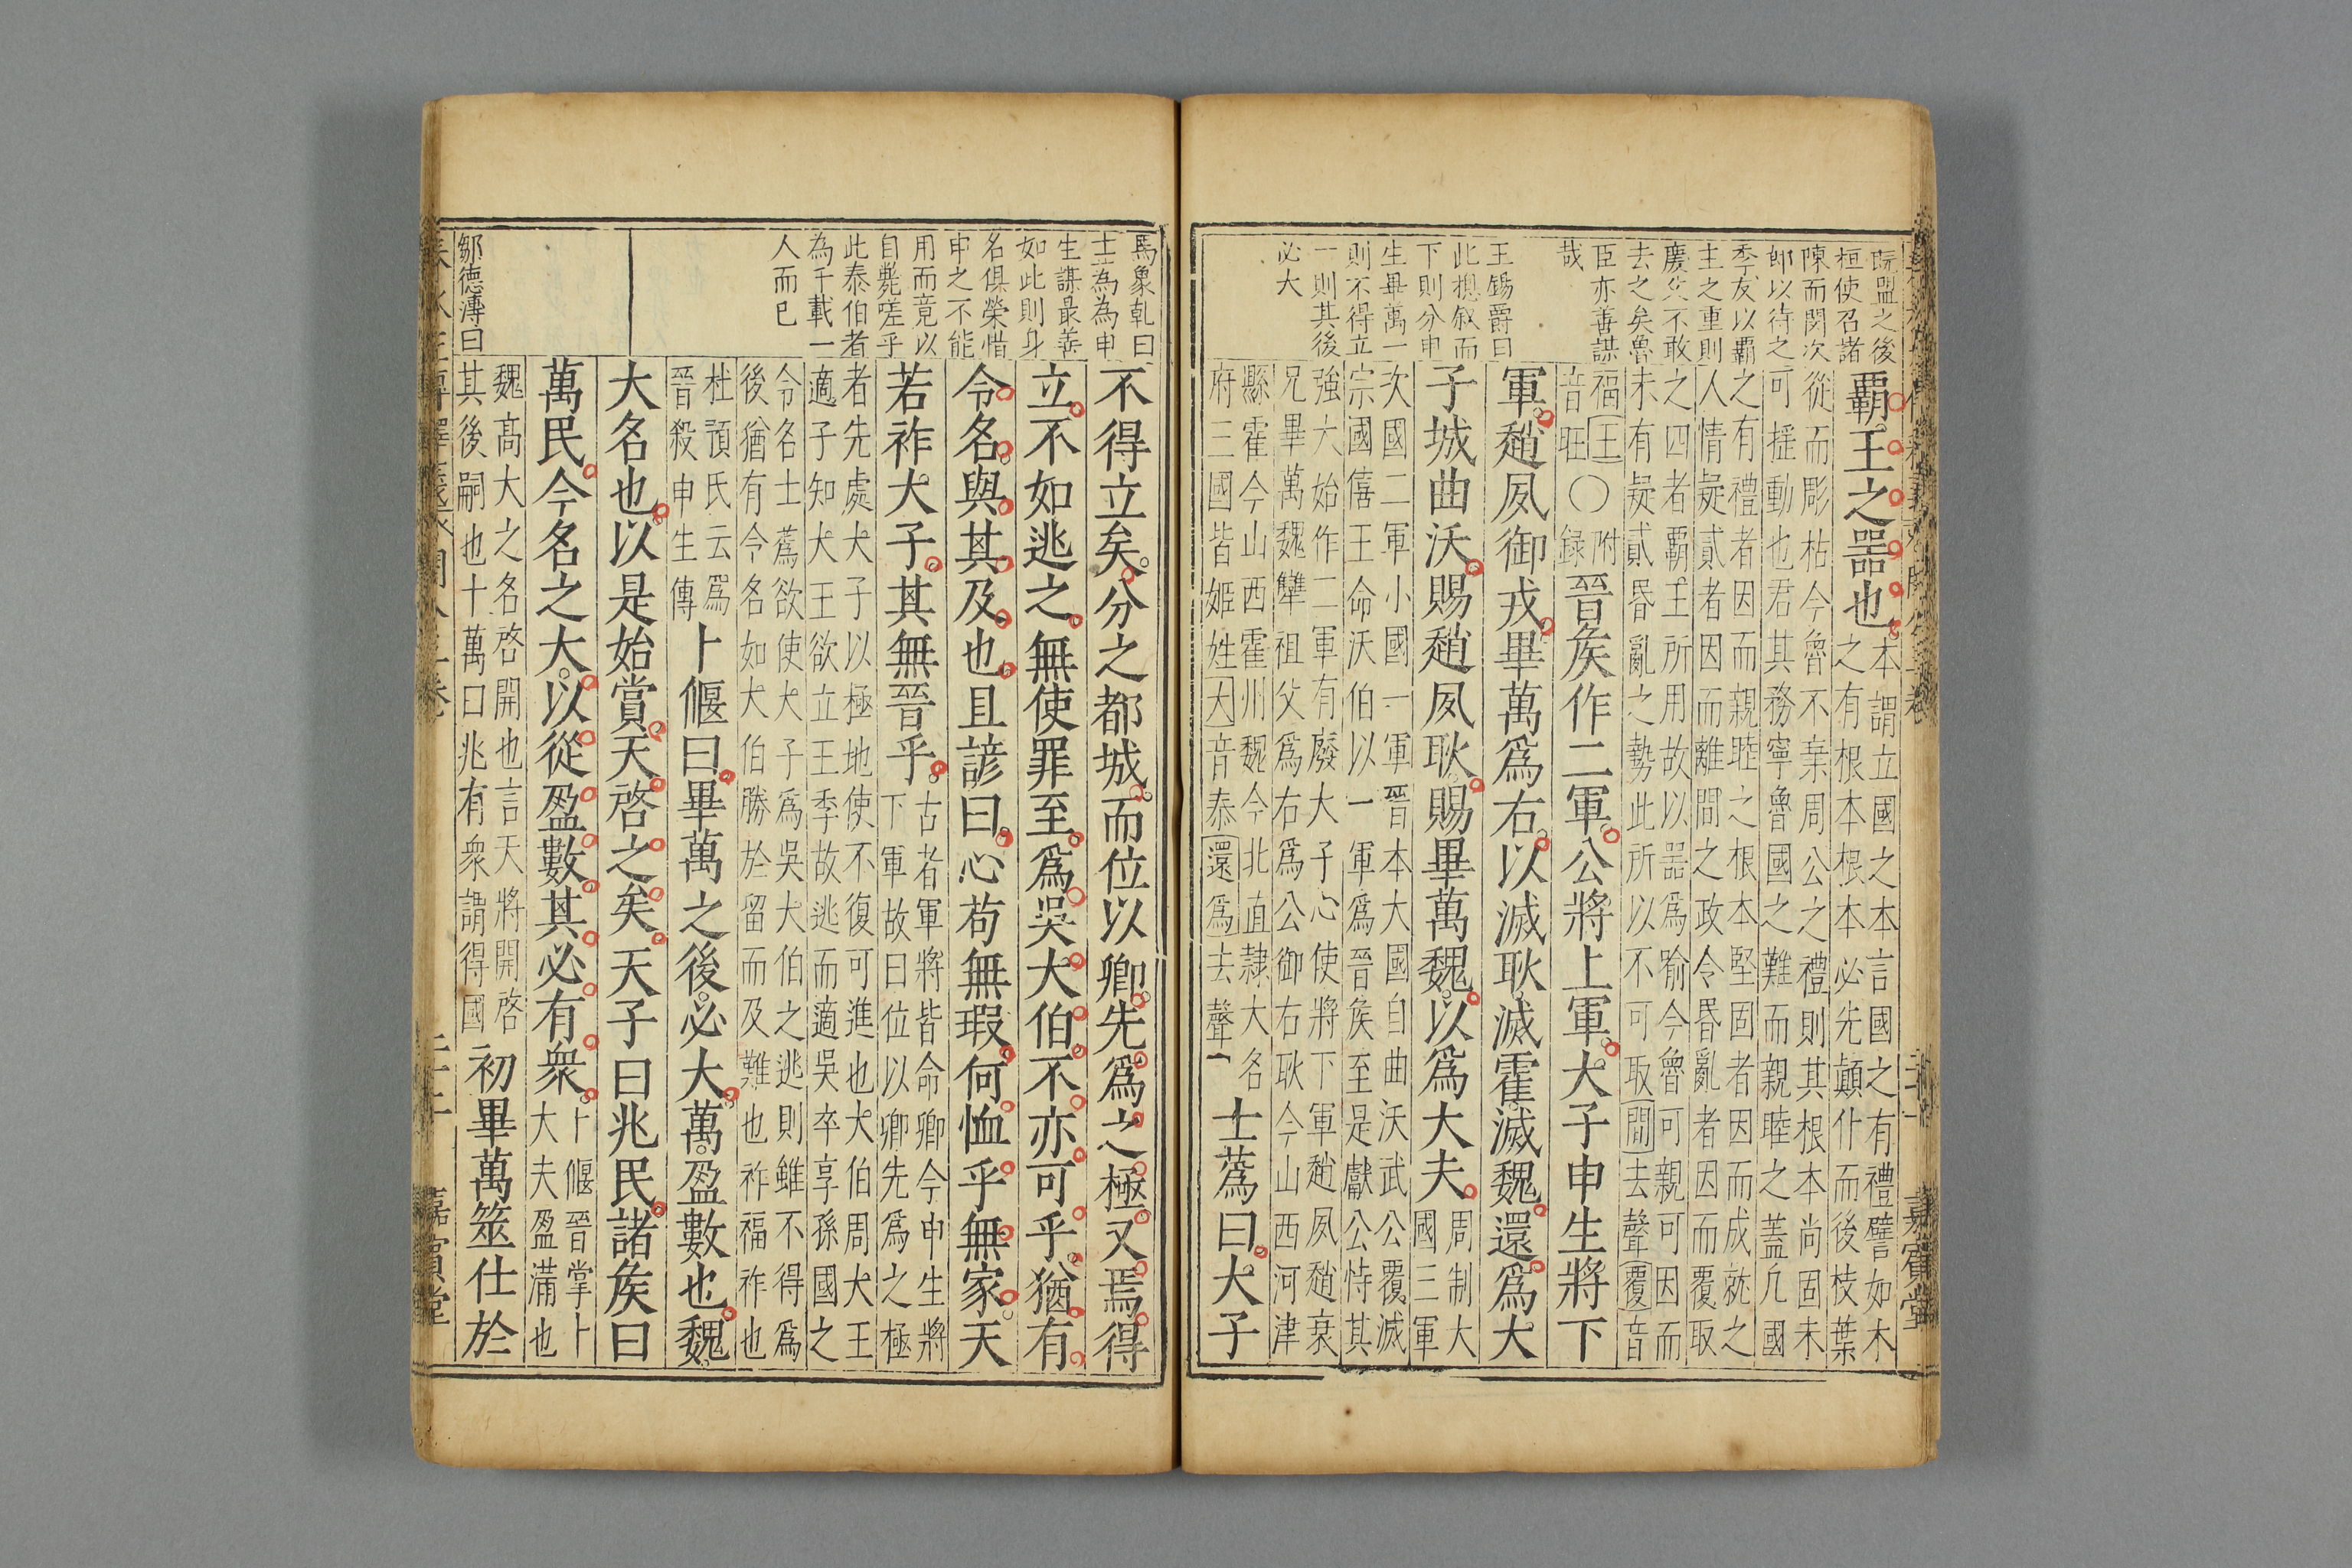 阮盟之後
桓使召諸
陳而閔次
郎以待之
季友以覇
主之重則
慶父不敢
去之矣魯
臣亦善謀
哉
王錫爵曰
此摠叙而
下則分申
生畢萬一
則不得立
一則其後
必大
覇王之噐也本謂立國之本言國之有禮譬如木
之有根本根本必先顛仆而後枝葉
從而彫枯今魯不棄周公之禮則其根本尚固未
可揺動也君其務寧魯國之難而親睦之蓋凡國
之有禮者因而親睦之根本堅固者因而成就之
人情疑貳者因而離間之政令昏亂者因而覆取
之四者覇王所用故以噐爲喻今魯可親可因而
未有疑貳昏亂之勢此所以不可取間去聲覆音
福王
音旺○附録晉矦作二軍公將上軍大子申生將下
軍趙夙御戎畢萬爲右以滅耿滅霍滅魏還爲大
子城曲沃賜趙夙耿賜畢萬魏以爲大夫周制大
國三軍
次國二軍小國一軍晉本大國自曲沃武公覆滅
宗國僖王命沃伯以一軍爲晉矦至是獻公恃其
強大始作二軍有廢大子心使將下軍趙夙趙衰
兄畢萬魏犨祖父爲右爲公御右耿今山西河津
縣霍今山西霍州魏今北直隸大名
府三國皆姬姓大音泰還爲去聲
士蒍曰大子
嘉賓堂
馬象乹曰
士蒍為申
生謀最善
如此則身
名俱榮惜
申之不能
用而竟以
自斃嗟乎
此泰伯者
為千載一
人而已
鄒德溥曰
不得立矣分之都城而位以卿先爲之極又焉得
立不如逃之無使罪至爲吳大伯不亦可乎猶有
令名與其及也且諺曰心苟無瑕何恤乎無家天
若祚大子其無晉乎古者軍將皆命卿今申生將
下軍故曰位以卿先爲之極
者先處大子以極地使不復可進也大伯周大王
適子知大王欲立王季故逃而適吳卒享孫國之
令名士蒍欲使大子爲吳大伯之逃則雖不得爲
後猶有令名如大伯勝於留而及難也祚福祚也
杜預氏云爲
晉殺申生傳
卜偃曰畢萬之後必大萬盈數也魏
大名也以是始賞天啓之矣天子曰兆民諸矦曰
萬民今名之大以從盈數其必有衆卜偃晉掌卜
大夫盈滿也
魏髙大之名啓開也言天將開啓
其後嗣也十萬曰兆有衆謂得國
初畢萬筮仕於
嘉賓堂